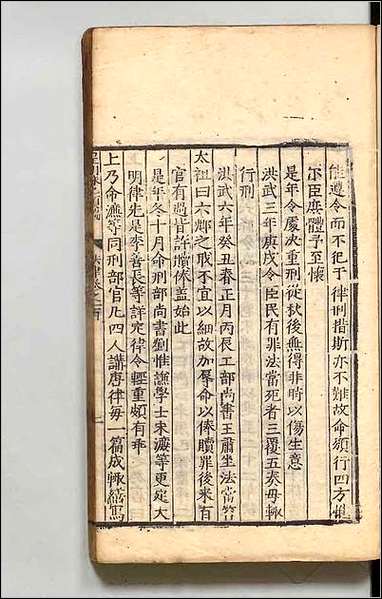 能遵令而不犯于律刑措斯亦不難故命頒行四方惟
尒臣庻體予至懐
是年令處决重刑從狱後無得非時以傷生意
洪武三年庚戌令臣民有罪法當死者三覆五奏毋輙
行刑
洪武六年癸丑春正月丙辰工部尚書王肅坐法當笞
太祖曰六卿之职不宜以細故加辱命以俸贖罪後来百
官有過皆許贖俸盖始此
是年冬十月命刑部尚書劉惟謙學士宋濂等更定大
明律先是李善長等詳定律令輕重頗有乖
上乃命濂等同刑部官凡四人講唐律每一篇成輙繕寫